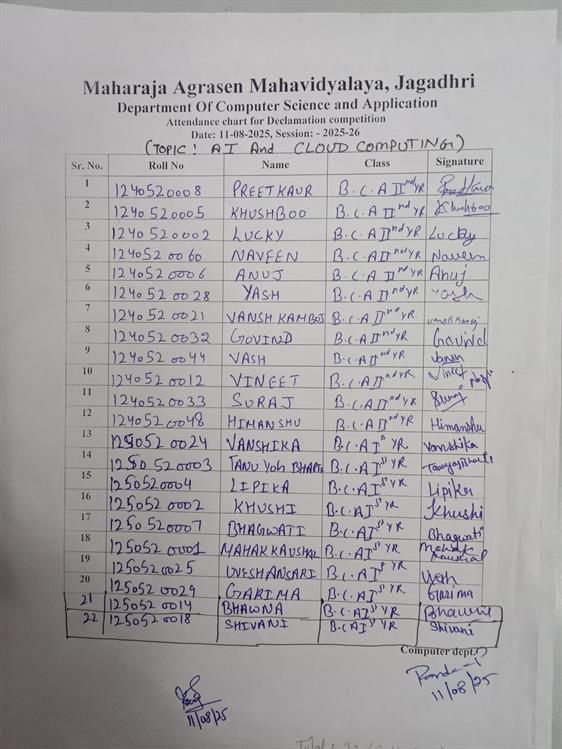 Maharaja Agrasen Mahavidyalaya, Jagadhri
Department Of Computer Science and Application
Attendance chart for Declamation competition
Date: 11-08-2025, Session: - 2025-26
(TOPIC: AI And CLOUD COMPUTING)
Sr. No. Roll No Name Class Signature
1 1240520008 PREETKAUR B.C.A IInd YR
2 1240520005 KHUSHBOO B.C.A IInd YR Khushboo
3 1240520002 LUCKY B.C.A IInd YR Lucky
4 1240520060 NAVEEN B.C.A IInd YR Naveen
5 1240520006 ANUJ B.C.A IInd YR Anuj
6 1240520028 YASH B.C.A IInd YR Yash
7 1240520021 VANSH KAMBOJ B.C.A IInd YR Vansh Kamboj
8 1240520032 GOVIND B.C.A IInd YR Govind
9 1240520044 VASH B.C.A IInd YR
10 1240520012 VINEET B.C.A IInd YR Vineet
11 1240520033 SURAJ B.C.A IInd YR Suraj
12 1240520048 HIMANSHU B.C.A IInd YR Himanshu
13 1250520024 VANSHIKA B.C.A Ist YR Vanshika
14 1250520003 TANU B.C.A Ist YR
15 1250520004 LIPIKA B.C.A Ist YR Lipika
16 1250520002 KHUSHI B.C.A Ist YR Khushi
17 1250520007 BHAGWATI B.C.A Ist YR Bhagwati
18 1250520001 MAHAK KAUSHAL B.C.A Ist YR Mahak Kaushal
19 1250520025 UVESH ANSARI B.C.A Ist YR Uvesh
20 1250520029 GARIMA B.C.A Ist YR Garima
21 1250520014 BHAWNA B.C.A Ist YR Bhawna
22 1250520018 SHIVANI B.C.A Ist YR Shivani
Computer dept.
11/08/25
11/08/25